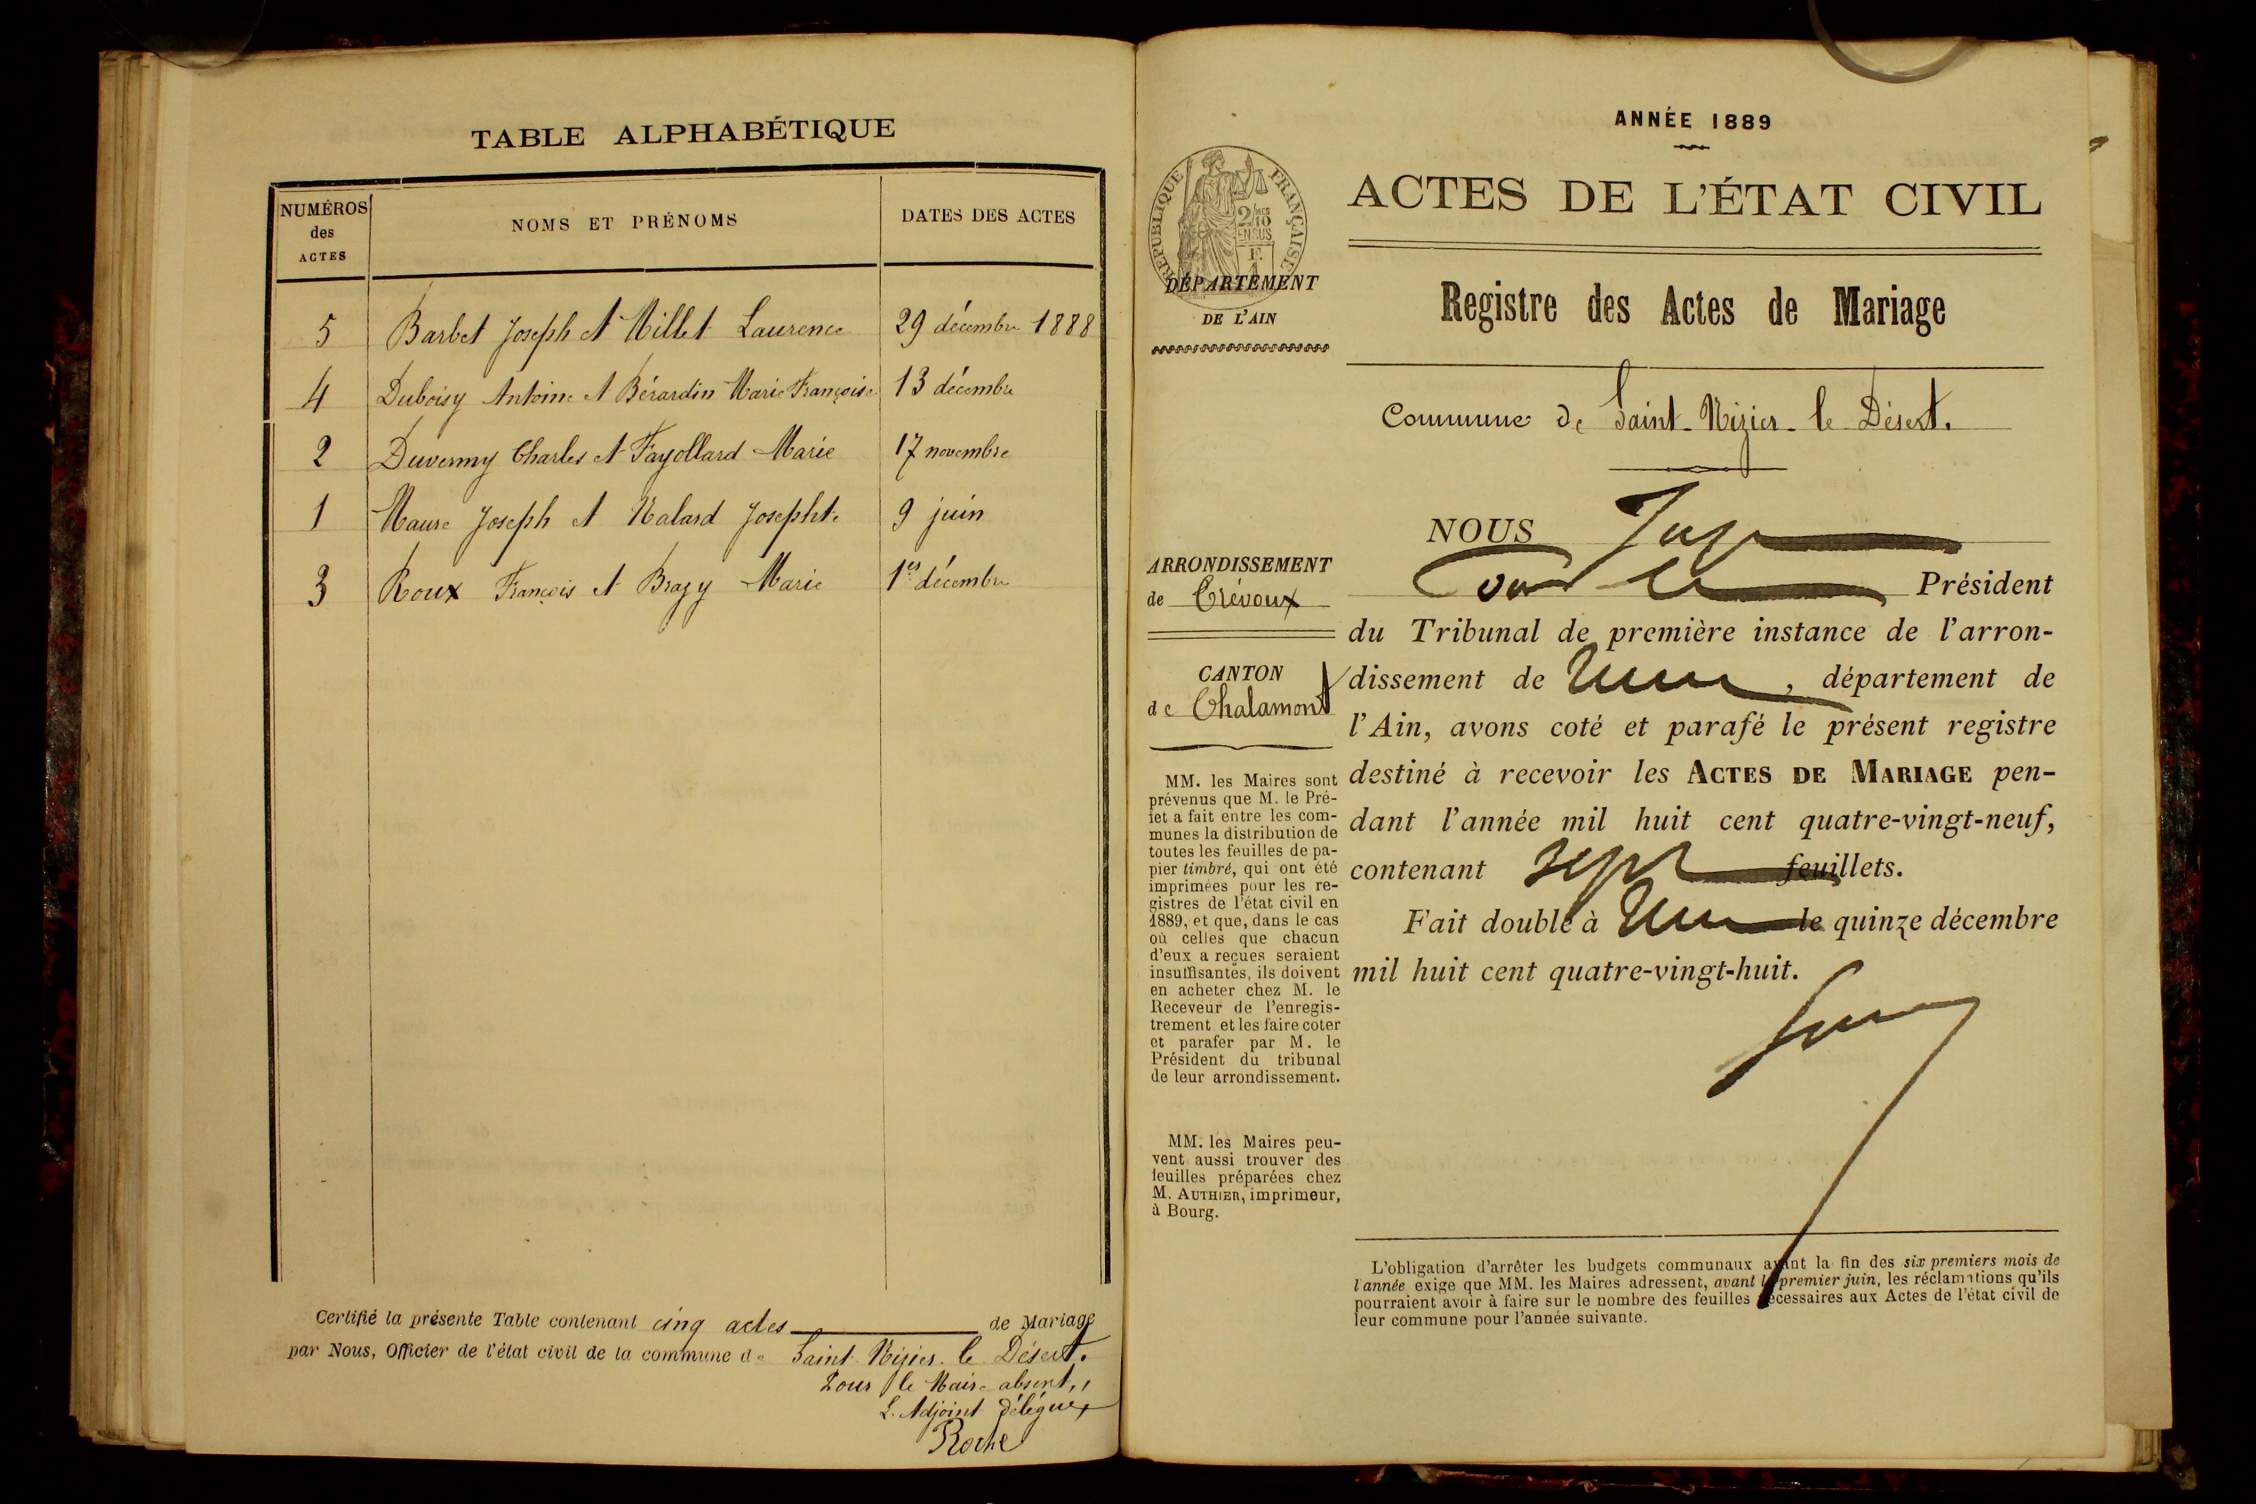 TABLE ALPHABÉTIQUE
NUMÉROS des ACTES
NOMS ET PRÉNOMS
DATES DES ACTES
5 Barbet Joseph et Millet Laurence 29 décembre 1888
4 Duboisy Antoine et Bérardin Marie Françoise 13 décembre
2 Duvernay Charles et Fayollard Marie 17 novembre
1 Maure Joseph et Malard Josephte 9 juin
3 Roux François et Brazy Marie 1er décembre
Certifié la présente Table contenant cinq actes de Mariage
par Nous, Officier de l'état civil de la commune de Saint Nizier le Désert.
Pour le Maire absent,
L'Adjoint délégué
Roche
ANNÉE 1889
ACTES DE L'ÉTAT CIVIL
RÉPUBLIQUE FRANÇAISE
2/10 EN SUS
DÉPARTEMENT
DE L'AIN
Registre des Actes de Mariage
Commune de Saint-Nizier-le Désert.
ARRONDISSEMENT
de Trévoux
CANTON
de Chalamont
MM. les Maires sont
prévenus que M. le Pré-
fet a fait entre les com-
munes la distribution de
toutes les feuilles de pa-
pier timbré, qui ont été
imprimées pour les re-
gistres de l'état civil en
1889, et que, dans le cas
où celles que chacun
d'eux a reçues seraient
insuffisantes, ils doivent
en acheter chez M. le
Receveur de l'enregis-
trement et les faire coter
et parafer par M. le
Président du tribunal
de leur arrondissement.
MM. les Maires peu-
vent aussi trouver des
feuilles préparées chez
M. AUTHIER, imprimeur,
à Bourg.
NOUS
Président
du Tribunal de première instance de l'arron-
dissement de , département de
l'Ain, avons coté et parafé le présent registre
destiné à recevoir les ACTES DE MARIAGE pen-
dant l'année mil huit cent quatre-vingt-neuf,
contenant sept feuillets.
Fait double à le quinze décembre
mil huit cent quatre-vingt-huit.
L'obligation d'arrêter les budgets communaux avant la fin des six premiers mois de
l'année exige que MM. les Maires adressent, avant le premier juin, les réclamations qu'ils
pourraient avoir à faire sur le nombre des feuilles nécessaires aux Actes de l'état civil de
leur commune pour l'année suivante.